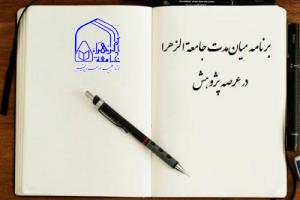 برنامه میان مدت جامعة الزهرا
در عرصه پژوهش